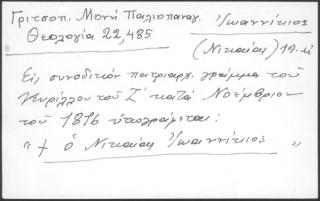 Γριτσοπ. Μονή Παλιοπαναγ. Ἰωαννίκιος
Θεολογία 22,485 (Νικαίας) 19. αἰ
Εἰς συνοδικὸν πατριαρχ. γράμμα τοῦ
Κυρίλλου τοῦ Ζ΄ κατά Νοέμβριον
τοῦ 1816 ὑπογράφεται:
"+ ὁ Νικαίας Ἰωαννίκιος "